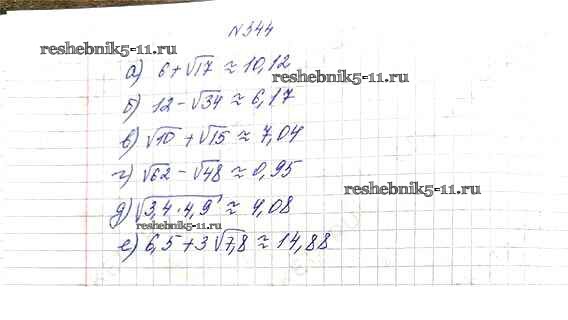 №344
reshebnik5-11.ru
а) 6+√17 ≈ 10,12
reshebnik5-11.ru
б) 12-√34 ≈ 6,17
в) √10 + √15 ≈ 7,04
г) √62 - √48 ≈ 0,95
reshebnik5-11.ru
д) √3,4·4,9 ≈ 4,08
reshebnik5-11.ru
е) 6,5+3√7,8 ≈ 14,88